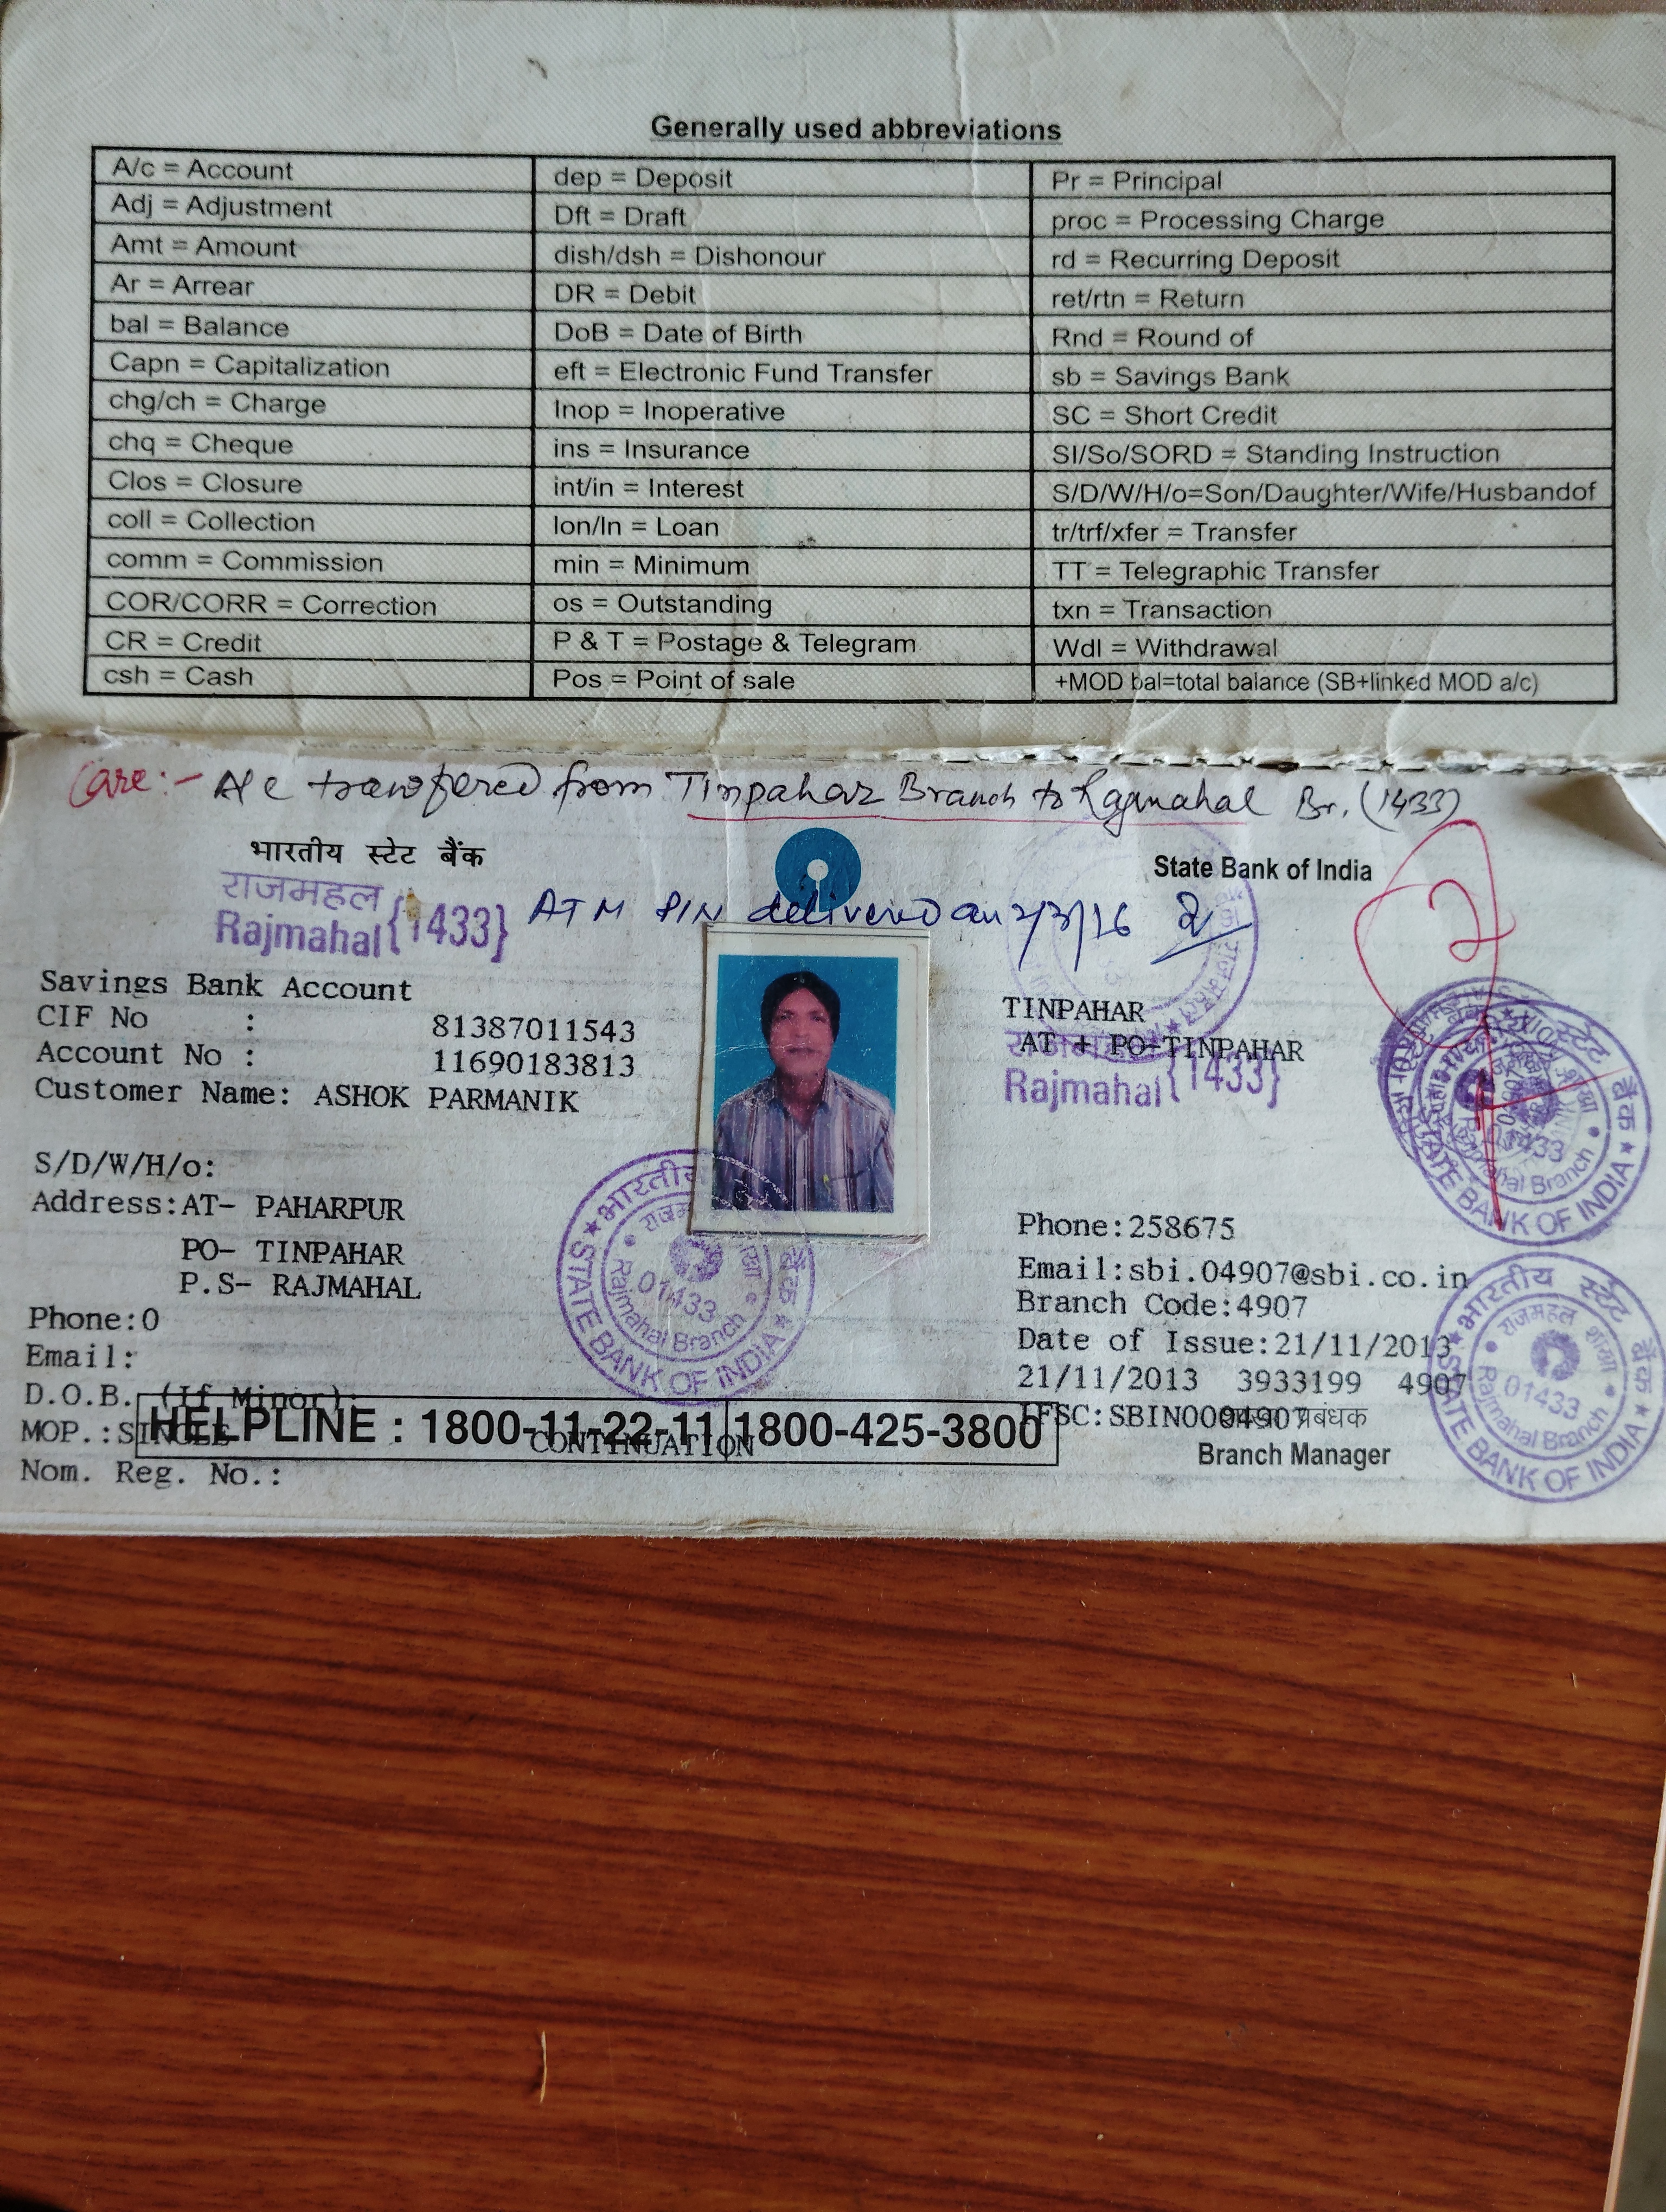 Generally used abbreviations
A/c = Account
dep = Deposit
Pr = Principal
Adj = Adjustment
Dft = Draft
proc = Processing Charge
Amt = Amount
dish/dsh = Dishonour
rd = Recurring Deposit
Ar = Arrear
DR = Debit
ret/rtn = Return
bal = Balance
DoB = Date of Birth
Rnd = Round of
Capn = Capitalization
eft = Electronic Fund Transfer
sb = Savings Bank
chg/ch = Charge
Inop = Inoperative
SC = Short Credit
chq = Cheque
ins = Insurance
SI/So/SORD = Standing Instruction
Clos = Closure
int/in = Interest
S/D/W/H/o=Son/Daughter/Wife/Husbandof
coll = Collection
lon/ln = Loan
tr/trf/xfer = Transfer
comm = Commission
min = Minimum
TT = Telegraphic Transfer
COR/CORR = Correction
os = Outstanding
txn = Transaction
CR = Credit
P & T = Postage & Telegram
Wdl = Withdrawal
csh = Cash
Pos = Point of sale
+MOD bal=total balance (SB+linked MOD a/c)
Care:- A/c transfered from Tinpahar Branch to Rajmahal Br. (1433)
भारतीय स्टेट बैंक
State Bank of India
राजमहल
Rajmahal {1433}
ATM PIN delivered on 2/3/16
Savings Bank Account
CIF No : 81387011543
Account No : 11690183813
Customer Name: ASHOK PARMANIK
S/D/W/H/o:
Address:AT- PAHARPUR
PO- TINPAHAR
P.S- RAJMAHAL
Phone:0
Email:
D.O.B. (If Minor):
MOP.:SINGLE
Nom. Reg. No.:
HELPLINE : 1800-11-22-11 1800-425-3800
CONTINUATION
TINPAHAR
AT + PO-TINPAHAR
राजमहल
Rajmahal {1433}
Phone:258675
Email:sbi.04907@sbi.co.in
Branch Code:4907
Date of Issue:21/11/2013
21/11/2013 3933199 4907
IFSC:SBIN0004907
प्रबंधक
Branch Manager
भारतीय स्टेट बैंक
STATE BANK OF INDIA
राजमहल शाखा
01433
Rajmahal Branch
भारतीय स्टेट बैंक
STATE BANK OF INDIA
राजमहल शाखा
01433
Rajmahal Branch
स्टेट बैंक
STATE BANK OF INDIA
Rajmahal Branch